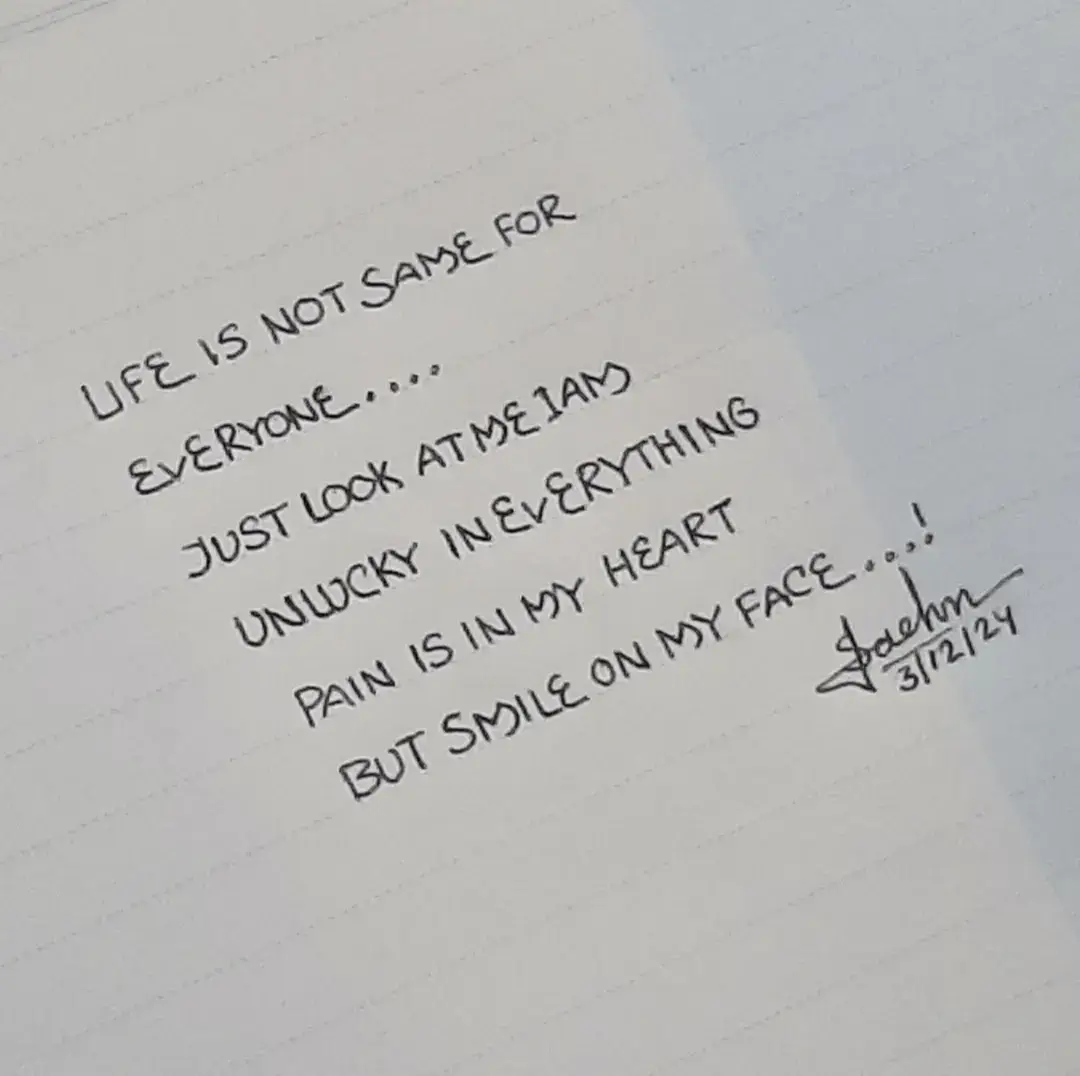 LIFE IS NOT SAME FOR
EVERYONE....
JUST LOOK AT ME I AM
UNLUCKY IN EVERYTHING
PAIN IS IN MY HEART
BUT SMILE ON MY FACE....!
3/12/24